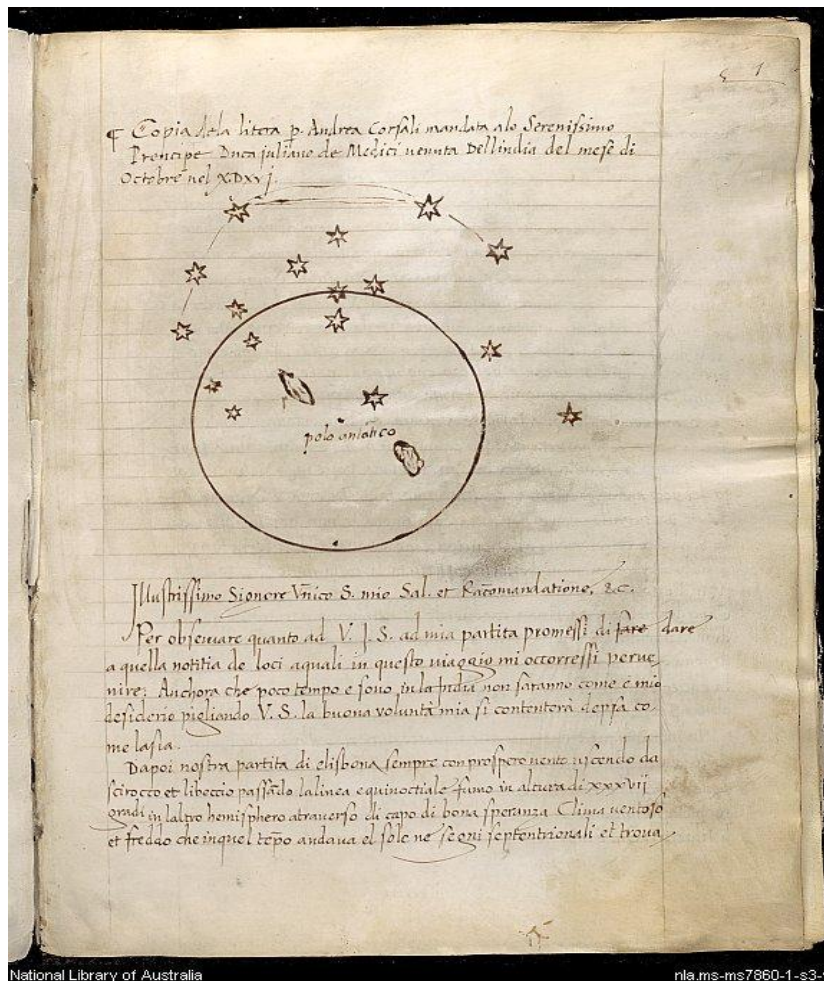 1
¶ Copia dela litera p. Andrea Corsali mandata alo Serenissimo
Principe Duca Juliano de Medici venuta Dellindia del mese di
Octobre nel XDXVJ.
polo antātico
Illustrissimo Signore Vnico S. mio Sal. et Racōmandatione, &c.
Per observare quanto ad V. J. S. ad mia partita promessi di fare dare
a quella notitia de loci aquali in questo viaggio mi occorressi perve
nire: Anchora che poco tempo e sono in la India non saranno come e mio
desiderio pigliando V. S. la buona voluntà mia si contenterà depsa co
me lasia.
Dapoi nostra partita di elisbona sempre con prospero vento uscendo da
scirocco et libeccio passādo la linea equinoctiale fumo in altura di xxxvij
gradi in laltro hemisphero atraverso di capo di bona speranza Clima ventoso
et freddo che in quel tēpo andava el sole ne segni septentrionali et trova
National Library of Australia
nla.ms-ms7860-1-s3-v